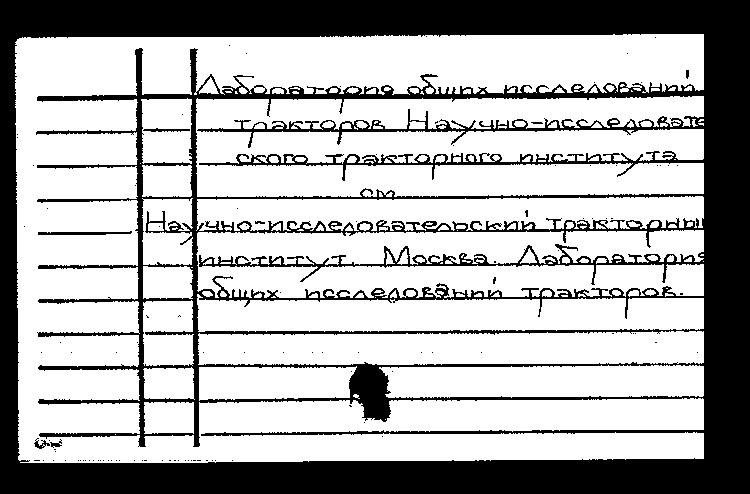 Лаборатория общих исследований
тракторов Научно-исследовате
ского тракторного института
см
Научно-исследовательский тракторны
институт. Москва. Лаборатория
общих исследований тракторов.